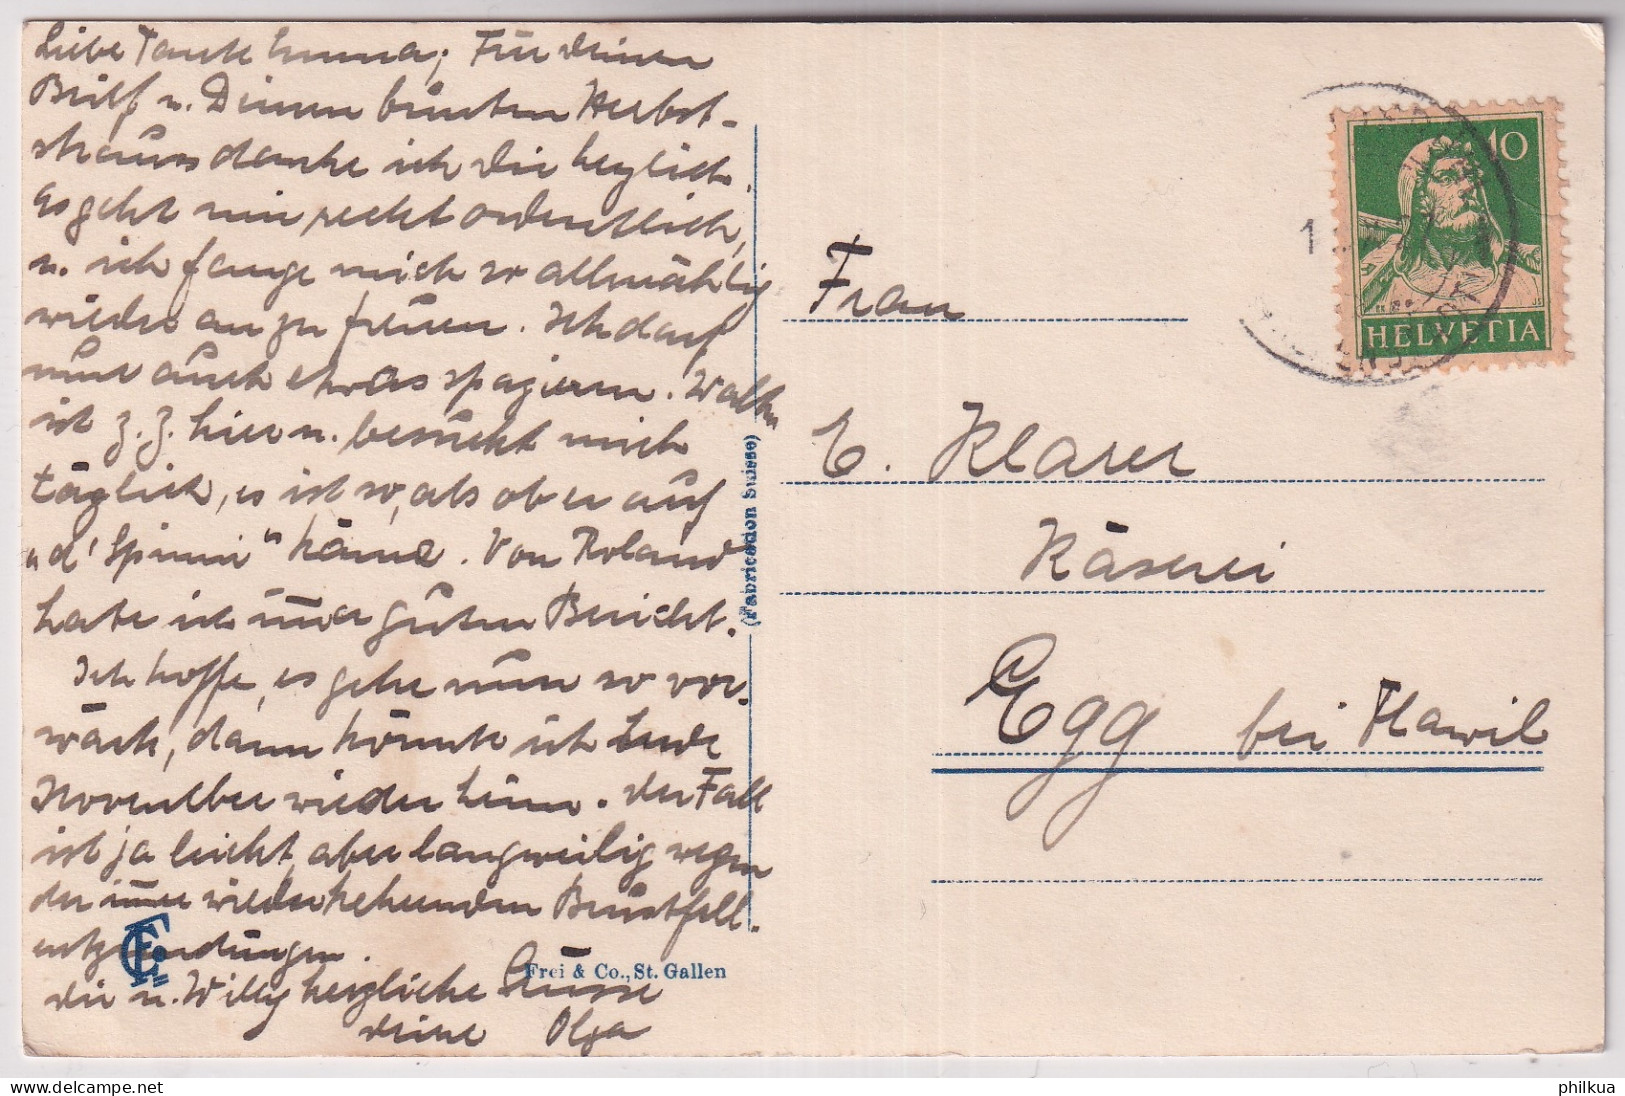 Liebe Tante Emma; Für deinen
Brief u. Deinen bunten Herbst-
strauss danke ich dir herzlich.
Es geht mir recht ordentlich,
u. ich fange mich so allmählig
wieder an zu freuen. Ich darf
nun auch etwas spazieren. Walter
ist z. Z. hier u. besucht mich
täglich, es ist so, als ob er auf
„d' Spinni" käme. Von Roland
habe ich immer guten Bericht.
Ich hoffe, es gehe nun so vor-
wärts, dann könnte ich Ende
November wieder heim. Der Fall
ist ja leicht, aber langweilig wegen
der immer wiederkehrenden Brustfell-
entzündungen.
Dir u. Willy herzliche Grüsse
deine Olga
Frei & Co., St. Gallen
(Fabrication Suisse)
10
HELVETIA
1
Frau
E. Klarer
Käserei
Egg bei Flawil
philkua